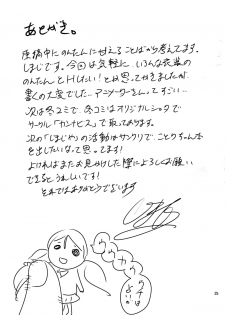 あとがき。
原稿中にのんたんに甘えることばかり考えてます。
しまじです。今回は気軽にいろんな衣装の
のんたんとHしたい!とか思ってかきましたが
書くの大変でした…アニメーターさんってすごい…
次は冬コミで、冬コミはオリジナルショタで
サークル「カンナビス」で取っております。
次の「しまじや」の活動はサンクリで、ことりちゃん本
を出したいなって思ってます!
よければまたお見かけした際によろしくお願い
できるとうれしいです!
それではありがとうございます
25